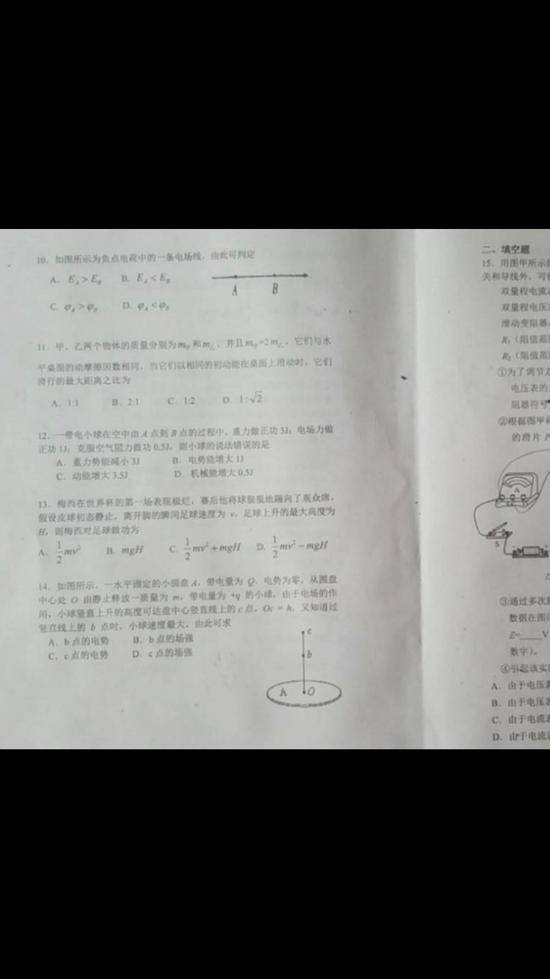 10. 如图所示为负点电荷中的一条电场线，由此可判定
A. E_A > E_B B. E_A < E_B
C. φ_A > φ_B D. φ_A < φ_B
A B
11. 甲、乙两个物体的质量分别为m甲和m乙，并且m甲=2m乙，它们与水
平桌面的动摩擦因数相同，当它们以相同的初动能在桌面上滑动时，它们
滑行的最大距离之比为
A. 1:1 B. 2:1 C. 1:2 D. 1:√2
12. 一带电小球在空中由 A 点到 B 点的过程中，重力做正功 3J；电场力做
正功 1J；克服空气阻力做功 0.5J，则小球的说法错误的是
A. 重力势能减小 3J B. 电势能增大 1J
C. 动能增大 3.5J D. 机械能增大 0.5J
13. 梅西在世界杯的第一场表现极烂，赛后他将球狠狠地踢向了观众席，
假设皮球初态静止，离开脚的瞬间足球速度为 v，足球上升的最大高度为
H，则梅西对足球做功为
A. 1/2 mv² B. mgH C. 1/2 mv² + mgH D. 1/2 mv² − mgH
14. 如图所示，一水平固定的小圆盘 A，带电量为 Q，电势为零，从圆盘
中心处 O 由静止释放一质量为 m，带电量为 +q 的小球，由于电场的作
用，小球竖直上升的高度可达盘中心竖直线上的 c 点，Oc = h，又知道过
竖直线上的 b 点时，小球速度最大，由此可求
A. b 点的电势 B. b 点的场强
C. c 点的电势 D. c 点的场强
c
b
A O
二、填空题
15. 用图甲所示
关和导线外，可
双量程电流
双量程电压
滑动变阻器
R₁（阻值范
R₂（阻值范
①为了调节方
电压表的
阻器符号
②根据图甲
的滑片 P
A
S
③通过多次
数据在图
E=____V
数字）。
④引起该实
A. 由于电压表
B. 由于电压表
C. 由于电流表
D. 由于电流表